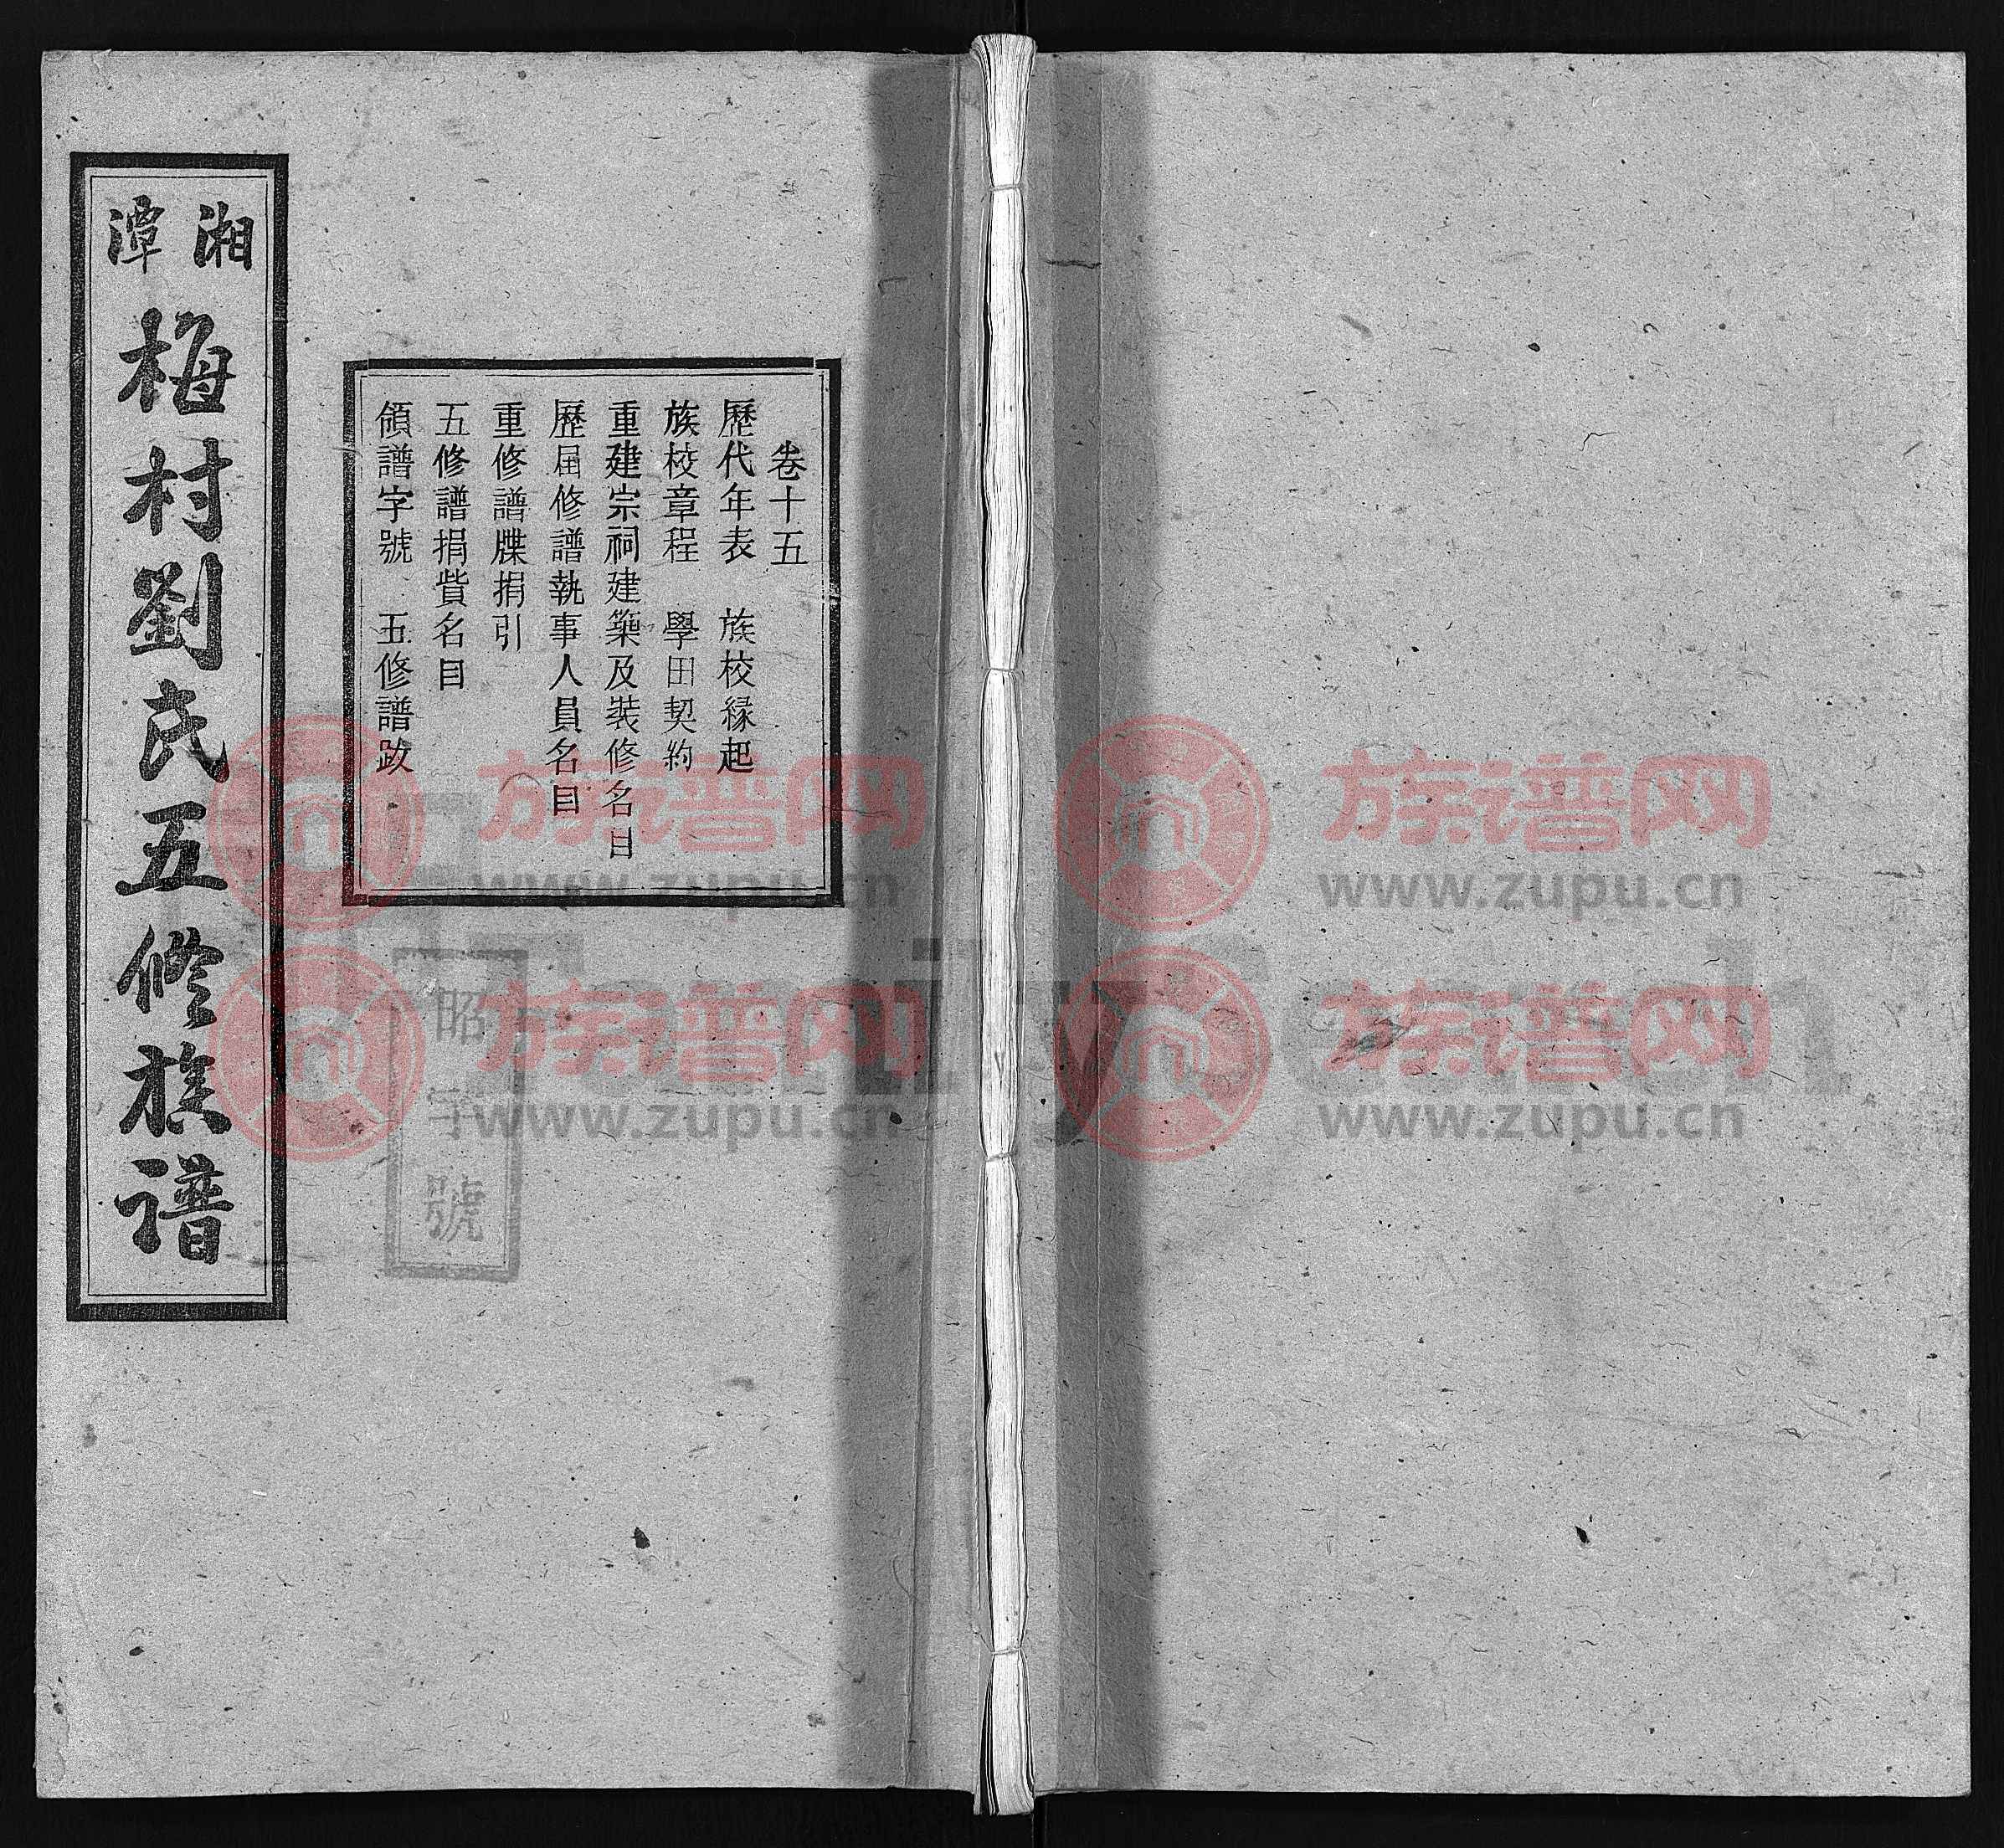 湘潭
梅村劉氏五修族譜
卷十五
歷代年表　族校緣起
族校章程　學田契約
重建宗祠建築及裝修名目
歷屆修譜執事人員名目
重修譜牒捐引
五修譜捐貲名目
領譜字號　五修譜跋
昭字號
族谱网
www.zupu.cn
族谱网
www.zupu.cn
族谱网
www.zupu.cn
族谱网
www.zupu.cn
FamilySearch